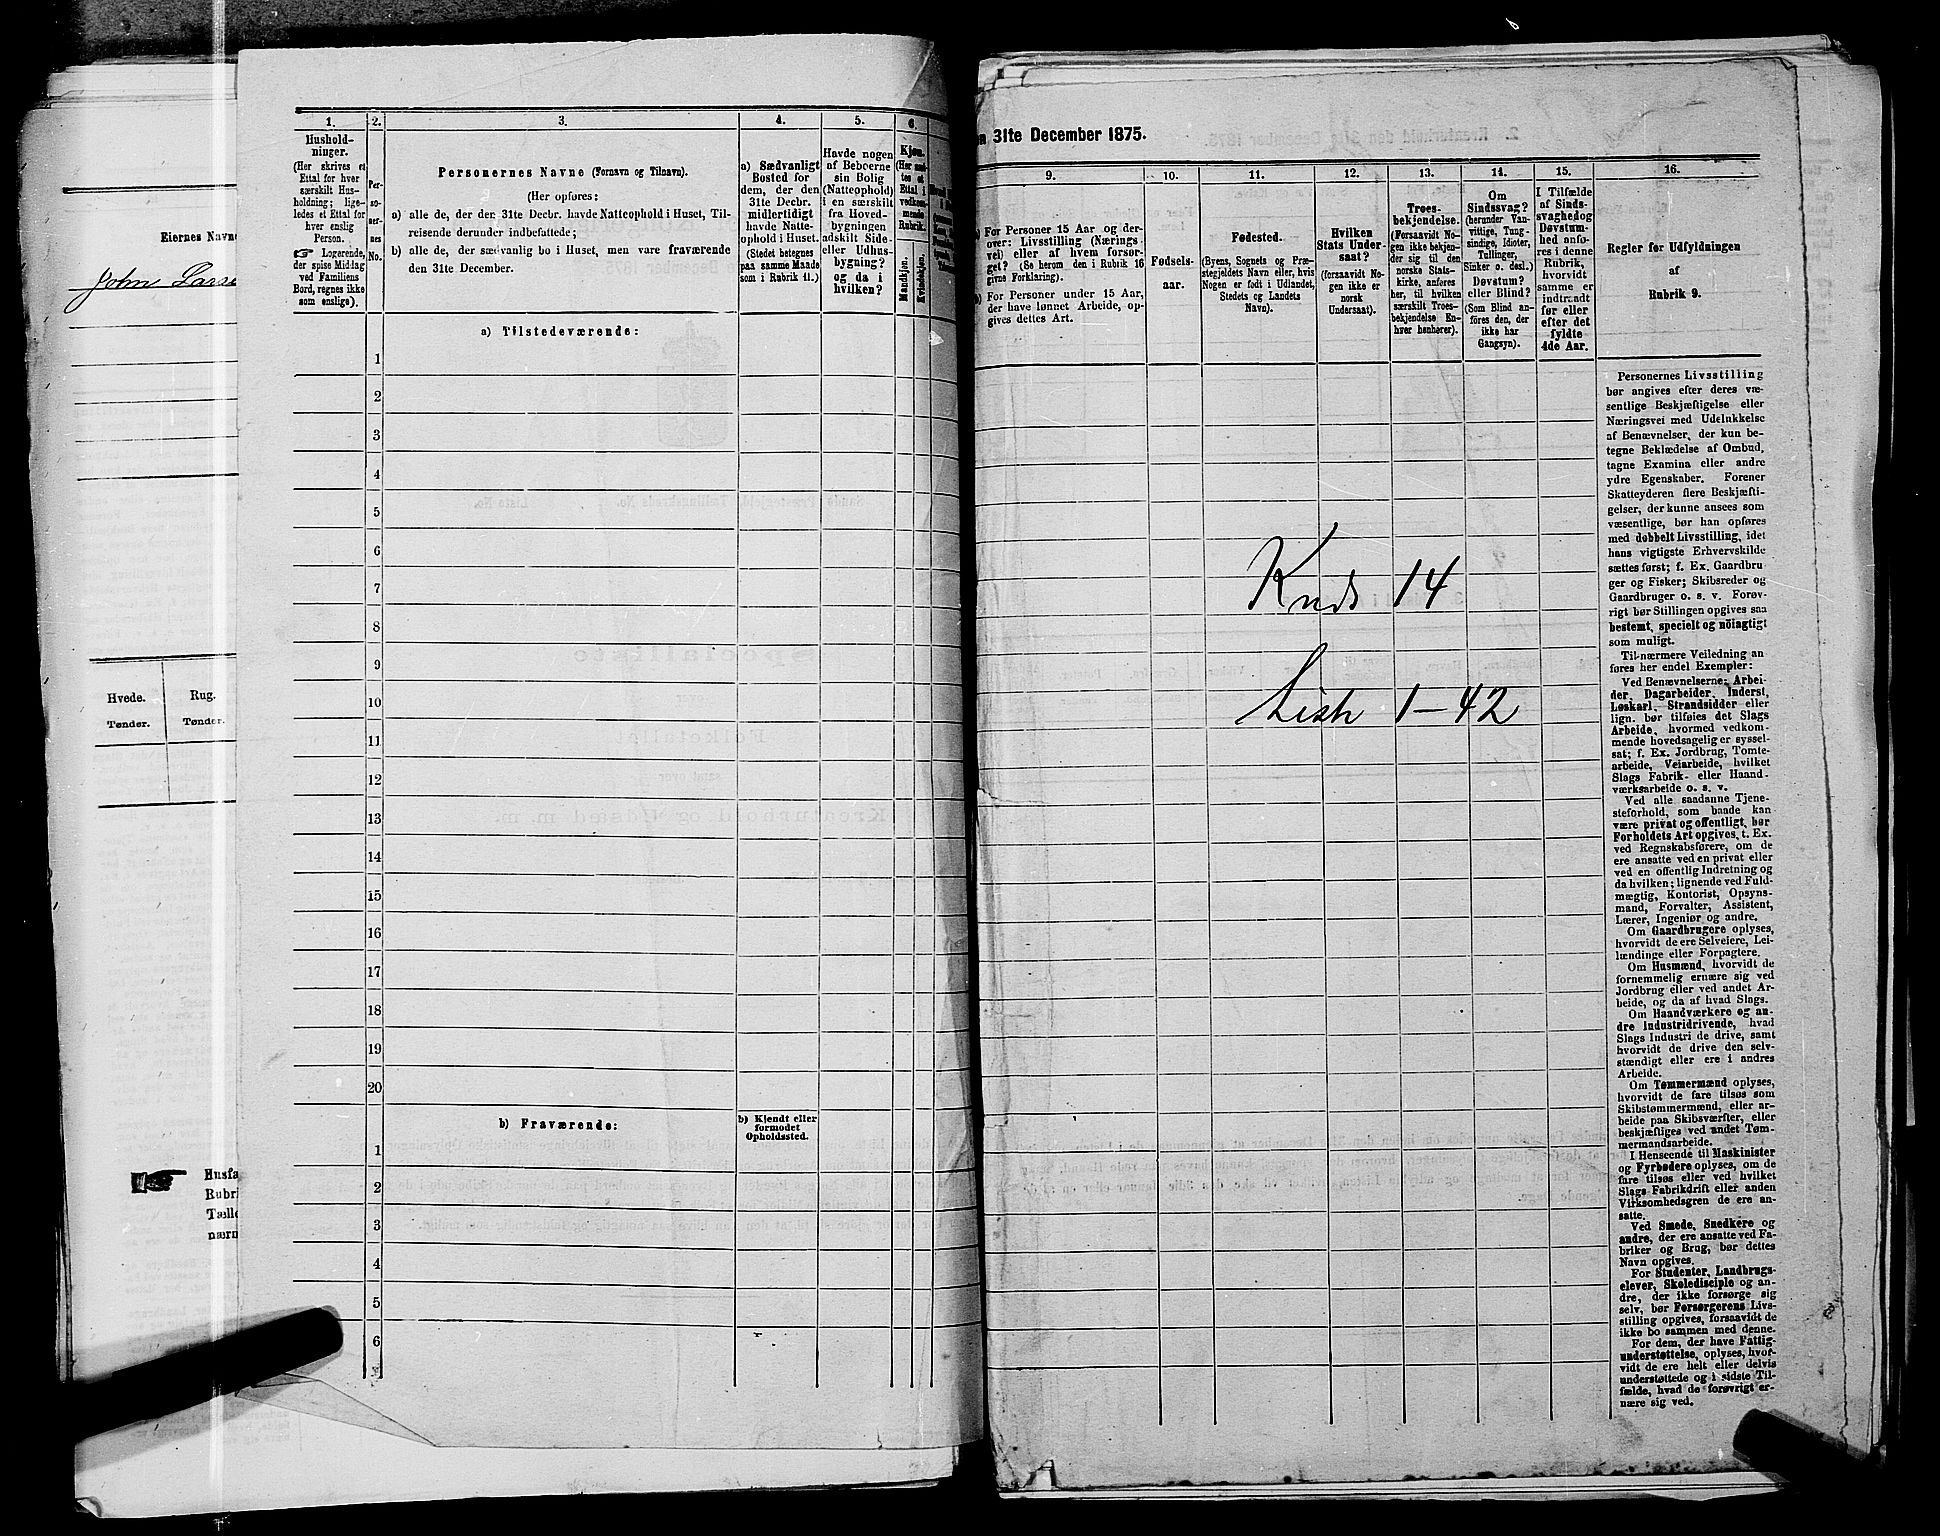 Eiernes Navne
John Larse
Hvede.
Tønder.
Rug.
Tønder.
Husfa
Rubri
Tælle
nærm
1.
Hushold-
ninger.
(Her skrives et
Ettal for hver
særskilt Hus-
holdning; lige-
ledes et Ettal for
hver enslig
Person.
☞ Logerende,
der spise Middag
ved Familiens
Bord, regnes ikke
som enslige).
2.
Per-
so-
ner-
nes
No.
3.
Personernes Navne (Fornavn og Tilnavn).
(Her opføres:
a) alle de, der den 31te Decbr. havde Natteophold i Huset, Til-
reisende derunder indbefattede;
b) alle de, der sædvanlig bo i Huset, men vare fraværende
den 31te December.
4.
a) Sædvanligt
Bosted for
dem, der den
31te Decbr.
midlertidigt
havde Natte-
ophold i Huset.
(Stedet betegnes
paa samme Maade
som i Rubrik 11.)
5.
Havde nogen
af Beboerne
sin Bolig
(Natteophold)
i en særskilt
fra Hoved-
bygningen
adskilt Side-
eller Udhus-
bygning?
og da i
hvilken?
6.
Kjøn.
(Her sæt-
tes et
Ettal i
vedkom-
mende
Rubrik.
Mandkjøn.
Kvindekjøn.
a) Tilstedeværende:
1
2
3
4
5
6
7
8
9
10
11
12
13
14
15
16
17
18
19
20
b) Fraværende:
b) Kjendt eller
formodet
Opholdssted.
1
2
3
4
5
6
n 31te December 1875.
9.
a) For Personer 15 Aar og der-
over: Livsstilling (Nærings-
vei) eller af hvem forsør-
get? (Se herom den i Rubrik 16
givne Forklaring).
b) For Personer under 15 Aar,
der have lønnet Arbeide, op-
gives dettes Art.
10.
Fødsels-
aar.
11.
Fødested.
(Byens, Sognets og Præ-
stegjeldets Navn eller, hvis
Nogen er født i Udlandet,
Stedets og Landets
Navn).
12.
Hvilken
Stats Under-
saat?
(forsaavidt No-
gen ikke er
norsk
Undersaat).
13.
Troes-
bekjendelse.
(Forsaavidt No-
gen ikke bekjen-
der sig til den
norske Stats-
kirke, anføres
her, til hvilken
særskilt Troes-
bekjendelse En-
hver henhører).
14.
Om
Sindssvag?
(herunder Van-
vittige, Tung-
sindige, Idioter,
Tullinger,
Sinker o. desl.)
Døvstum?
eller Blind?
(Som Blind an-
føres den, der
ikke har
Gangsyn).
15.
I Tilfælde
af Sinds-
svaghed og
Døvstum-
hed anfø-
res i denne
Rubrik,
hvorvidt
samme er
indtraadt
før eller
efter det
fyldte
4de Aar.
16.
Regler for Udfyldningen
af
Rubrik 9.
Knds 14
Liste 1-42
Personernes Livsstilling
bør angives efter deres væ-
sentlige Beskjæftigelse eller
Næringsvei med Udelukkelse
af Benævnelser, der kun be-
tegne Beklædelse af Ombud,
tagne Examina eller andre
ydre Egenskaber. Forener
Skatteyderen flere Beskjæfti-
gelser, der kunne ansees som
væsentlige, bør han opføres
med dobbelt Livsstilling, idet
hans vigtigste Erhvervskilde
sættes først; f. Ex. Gaardbru-
ger og Fisker; Skibsreder og
Gaardbruger o. s. v. Forøv-
rigt bør Stillingen opgives saa
bestemt, specielt og nöiagtigt
som muligt.
Til nærmere Veiledning an-
føres her endel Exempler:
Ved Benævnelserne: Arbei-
der, Dagarbeider, Inderst,
Løskarl, Strandsidder eller
lign. bør tilføies det Slags
Arbeide, hvormed vedkom-
mende hovedsagelig er syssel-
sat; f. Ex. Jordbrug, Tomte-
arbeide, Veiarbeide, hvilket
Slags Fabrik- eller Haand-
værksarbeide o. s. v.
Ved alle saadanne Tjene-
steforhold, som baade kan
være privat og offentligt, bør
Forholdets Art opgives, t. Ex.
ved Regnskabsførere, om de
ere ansatte ved en privat eller
ved en offentlig Indretning og
da hvilken; lignende ved Fuld-
mægtig, Kontorist, Opsyns-
mand, Forvalter, Assistent,
Lærer, Ingeniør og andre.
Om Gaardbrugere oplyses,
hvorvidt de ere Selveiere, Lei-
lændinge eller Forpagtere.
Om Husmænd, hvorvidt de
fornemmelig ernære sig ved
Jordbrug eller ved andet Ar-
beide, og da af hvad Slags.
Om Haandværkere og an-
dre Industridrivende, hvad
Slags Industri de drive, samt
hvorvidt de drive den selv-
stændigt eller ere i andres
Arbeide.
Om Tømmermænd oplyses,
hvorvidt de fare tilsøs som
Skibstømmermænd, eller ar-
beide paa Skibsværfter, eller
beskjæftiges ved andet Tøm-
mermandsarbeide.
I Henseende til Maskinister
og Fyrbødere oplyses, om de
fare tilsøs eller ved hvilket
Slags Fabrikdrift eller anden
Virksomhedsgren de ere an-
satte.
Ved Smede, Snedkere og
andre, der ere ansatte ved Fa-
briker og Brug, bør dettes
Navn opgives.
For Studenter, Landbrugs-
elever, Skoledisciple og an-
dre, der ikke forsørge sig
selv, bør Forsørgerens Livs-
stilling opgives, forsaavidt de
ikke bo sammen med denne.
For dem, der have Fattig-
understøttelse, oplyses, hvor-
vidt de ere helt eller delvis
understøttede og i sidste Til-
fælde, hvad de forøvrigt er-
nære sig ved.